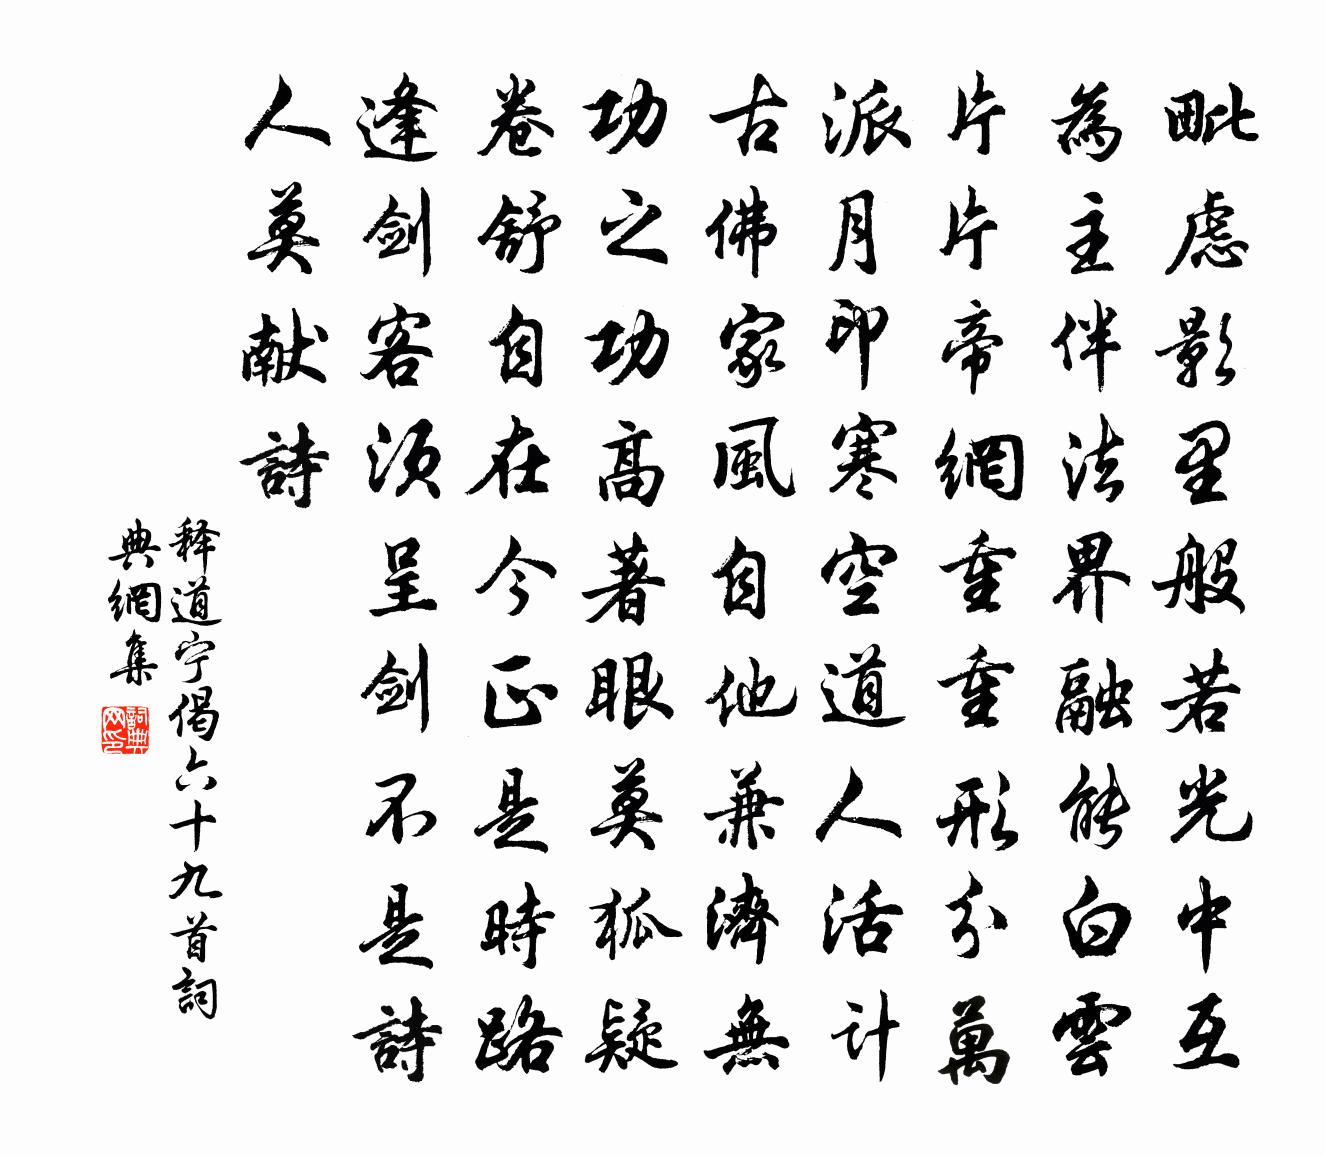 毗虑影里般若光中互
為主伴法界融能白雲
片片帝網重重形分萬
派月印寒空道人活计
古佛家風自他兼濟無
功之功高著眼莫狐疑
卷舒自在今正是時路
逢剑客须呈剑不是詩
人莫献詩
释道宁偈六十九首詞
典網集
詞典
网印